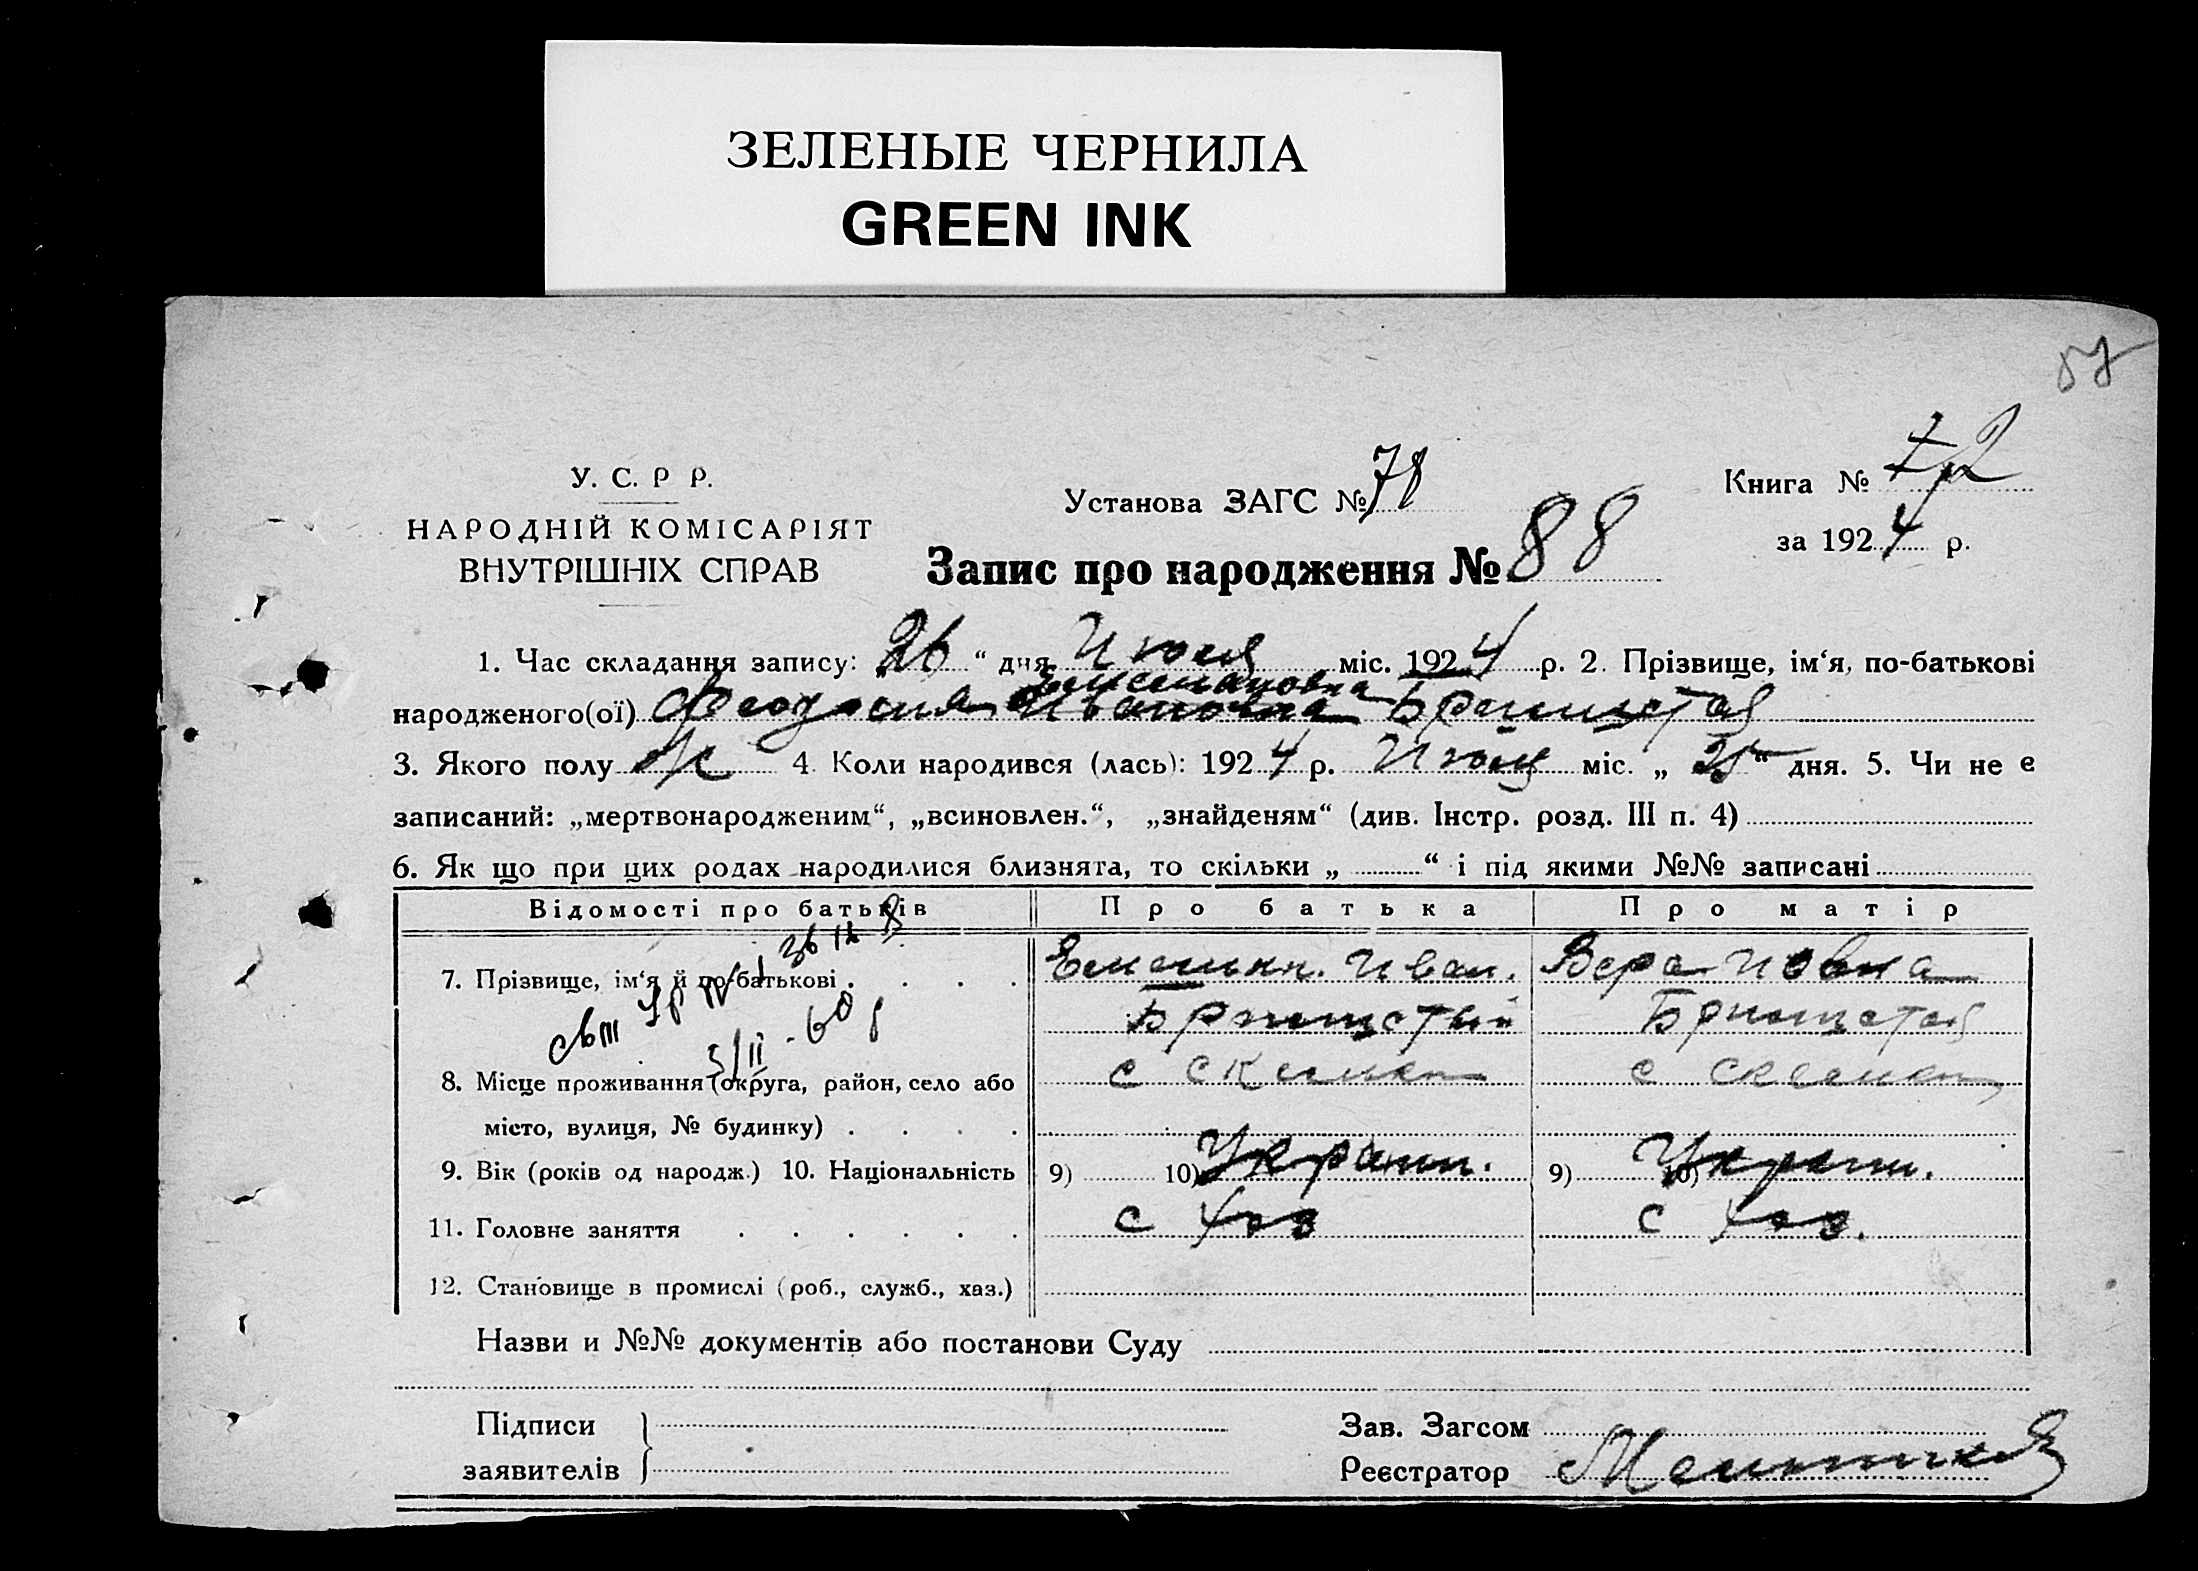 ЗЕЛЕНЫЕ ЧЕРНИЛА
GREEN INK
У. С. Р Р.
НАРОДНІЙ КОМІСАРІЯТ
ВНУТРІШНІХ СПРАВ
Установа ЗАГС № 78
Запис про народження № 88
Книга №
за 1924 р.
1. Час складання запису: „26“ дня Июля міс. 1924 р. 2. Прізвище, ім‘я, по-батькові
народженого(ої) Феодосия Ивановна
3. Якого полу ж 4. Коли народився (лась): 1924 р. Июля міс. „25“ дня. 5. Чи не є
записаний: „мертвонародженим“, „всиновлен.“, „знайденям“ (див. Інстр. розд. III п. 4)
6. Як що при цих родах народилися близнята, то скільки „ “ і під якими №№ записані
Відомості про батьків Про батька Про матір
7. Прізвище, ім‘я й по-батькові Иван. Вера
8. Місце проживання (округа, район, село або с с
місто, вулиця, № будинку)
9. Вік (років од народж.) 10. Національність 9) 10) Украин. 9) 10) Украин.
11. Головне заняття с хоз с хоз.
12. Становище в промислі (роб., служб., хаз.)
Назви и №№ документів або постанови Суду
Підписи
заявителів
Зав. Загсом
Реєстратор